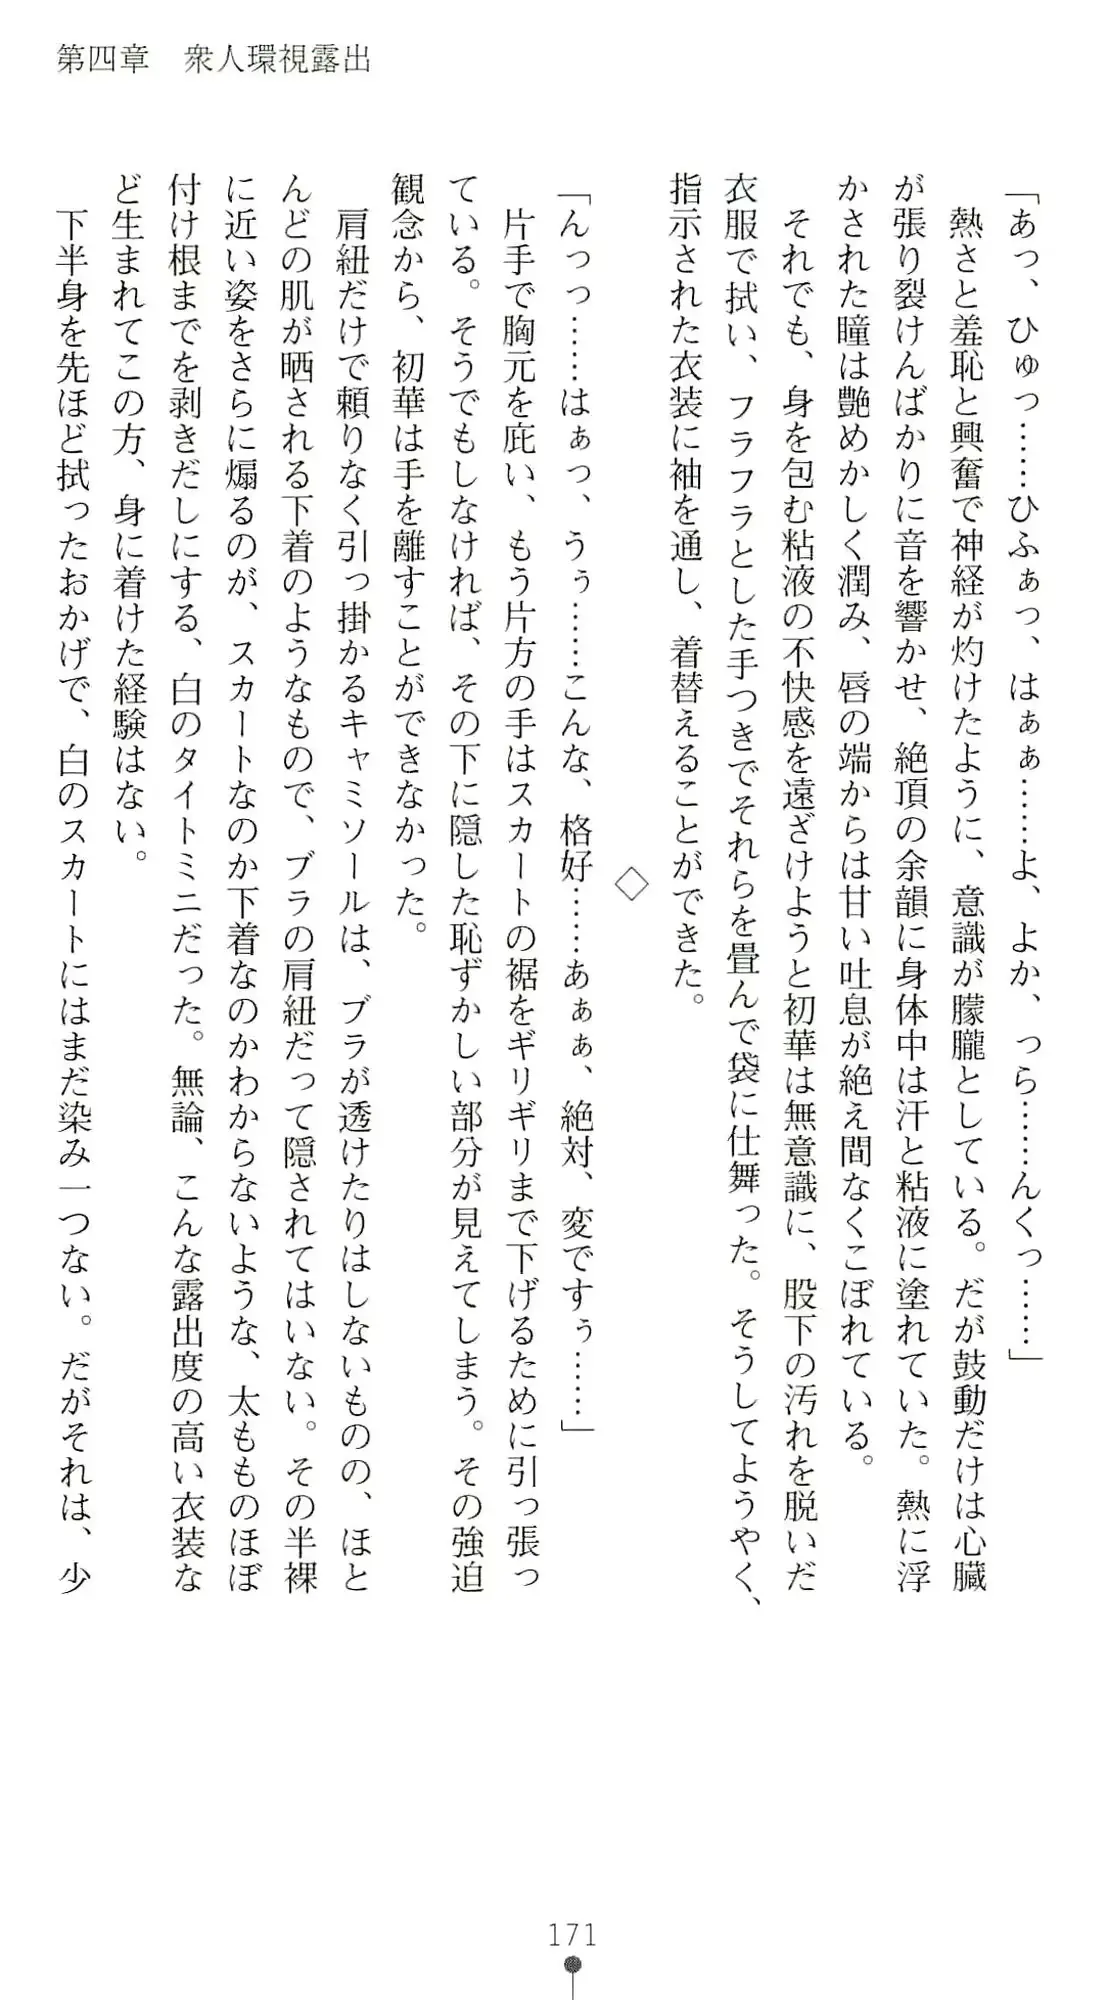 第四章　衆人環視露出
「あっ、ひゅっ……ひふぁっ、はぁぁ……よ、よか、っら……んくっ……」
　熱さと羞恥と興奮で神経が灼けたように、意識が朦朧としている。だが鼓動だけは心臓
が張り裂けんばかりに音を響かせ、絶頂の余韻に身体中は汗と粘液に塗れていた。熱に浮
かされた瞳は艶めかしく潤み、唇の端からは甘い吐息が絶え間なくこぼれている。
　それでも、身を包む粘液の不快感を遠ざけようと初華は無意識に、股下の汚れを脱いだ
衣服で拭い、フラフラとした手つきでそれらを畳んで袋に仕舞った。そうしてようやく、
指示された衣装に袖を通し、着替えることができた。
◇
「んっっ……はぁっ、うぅ……こんな、格好……あぁぁ、絶対、変ですぅ……」
　片手で胸元を庇い、もう片方の手はスカートの裾をギリギリまで下げるために引っ張っ
ている。そうでもしなければ、その下に隠した恥ずかしい部分が見えてしまう。その強迫
観念から、初華は手を離すことができなかった。
　肩紐だけで頼りなく引っ掛かるキャミソールは、ブラが透けたりはしないものの、ほと
んどの肌が晒される下着のようなもので、ブラの肩紐だって隠されてはいない。その半裸
に近い姿をさらに煽るのが、スカートなのか下着なのかわからないような、太もものほぼ
付け根までを剥きだしにする、白のタイトミニだった。無論、こんな露出度の高い衣装な
ど生まれてこの方、身に着けた経験はない。
　下半身を先ほど拭ったおかげで、白のスカートにはまだ染み一つない。だがそれは、少
171